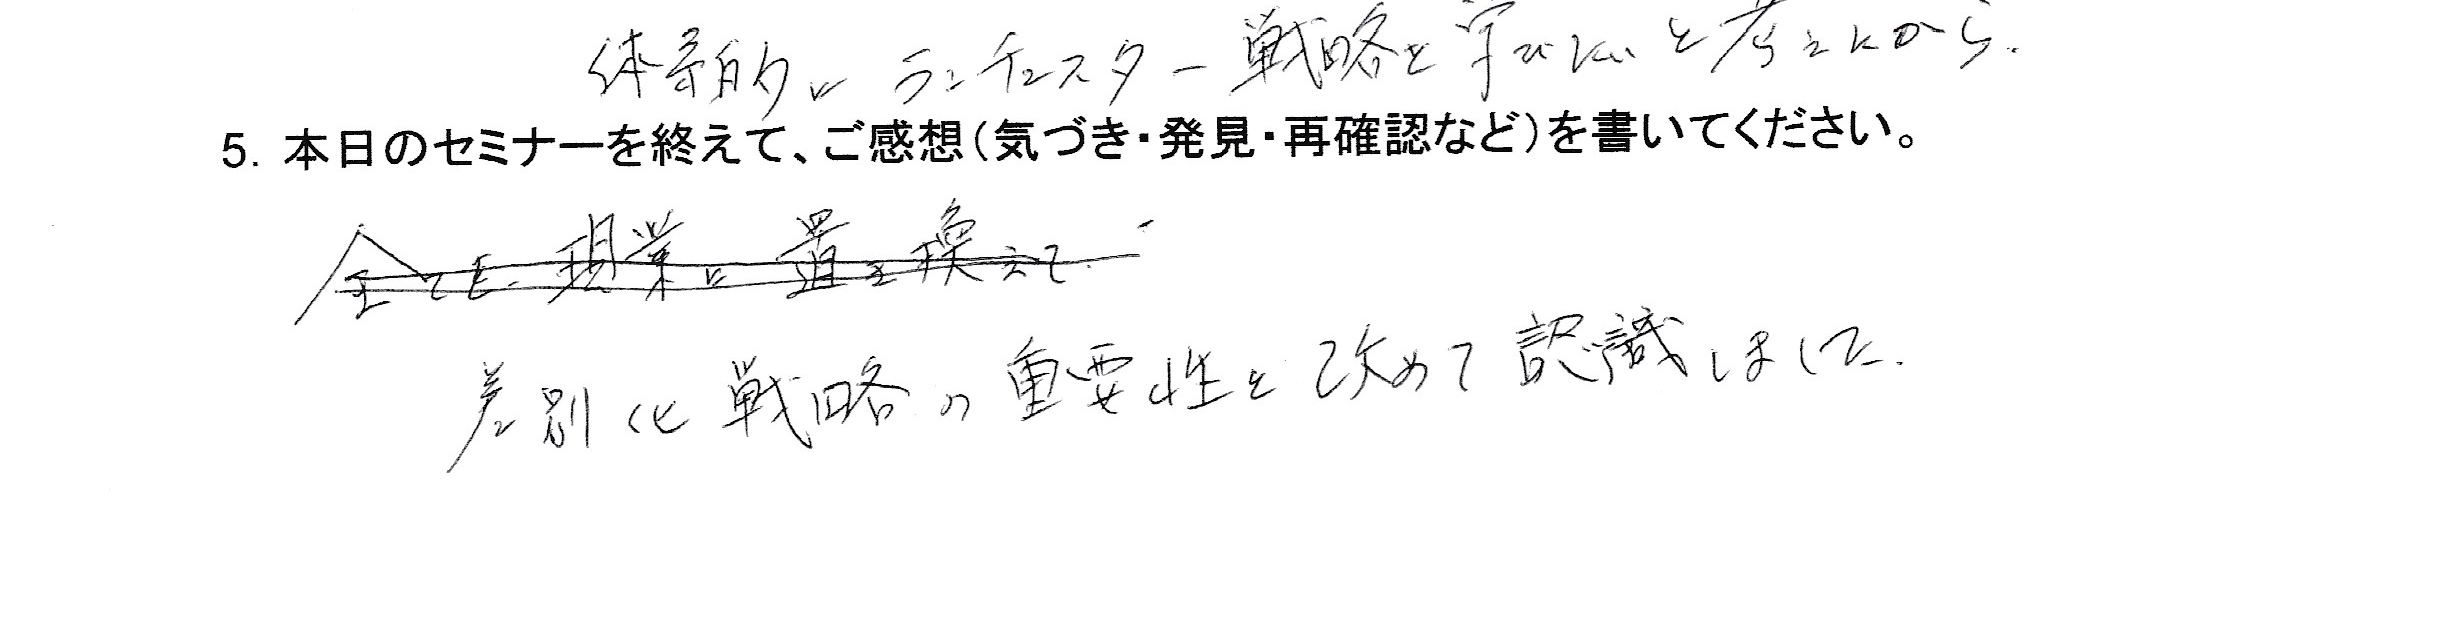 体系的にランチェスター戦略を学びたいと考えたから.
5. 本日のセミナーを終えて、ご感想(気づき・発見・再確認など)を書いてください。
全てを現業に置き換えて
差別化戦略の重要性を改めて認識しました.